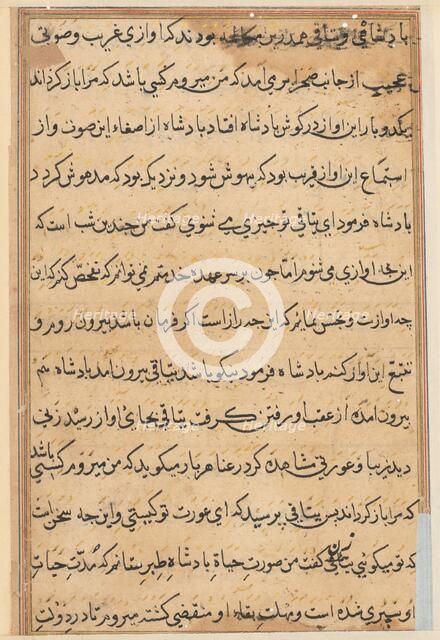 پادشاهی و یتاقی همدرین مکالمه بودند که اوازی غریب و صوتی
عجیب از جانب صحرا برمی آمد که من میروم کسی باشد که مرا باز گرداند
یکدو بار این اواز در گوش پادشاه افتاد پادشاه از اصغاء این صوت و از
استماع این اواز قریب بود که بیهوش شود و نزدیک بود که مدهوش گردد
پادشاه فرمود ای یتاقی تو چیزی می شنوی گفت من چندین شب است که
این اوازی می شنوم اما چون بر سر عهده خدمتم نمی توانم که تفحص کنم که این
چه اوازست و تجسس نمایم که این چه رازست اگر فرمان باشد بیرون روم و
تتبع این اواز کنم پادشاه فرمود نیکو باشد یتاقی بیرون امد پادشاه هم
بیرون امده از عقب او رفتن گرفت یتاقی بجای اواز رسید زنی
دید زیبا و عورتی مشاهده کرد رعنا هر بار میکوید که من میروم کسی باشد
که مرا باز گرداند پس یتاقی پرسید که ای عورت تو کیستی و این چه سخن است
که تو میکویی زن گفت من صورت حیاة پادشاه طبرستانم که مدت حیات
او سپری شده است و مهلت بقاء او منقضی کشته میروم تا در دولت
Heritage
Heritage
Heritage
Heritage
©